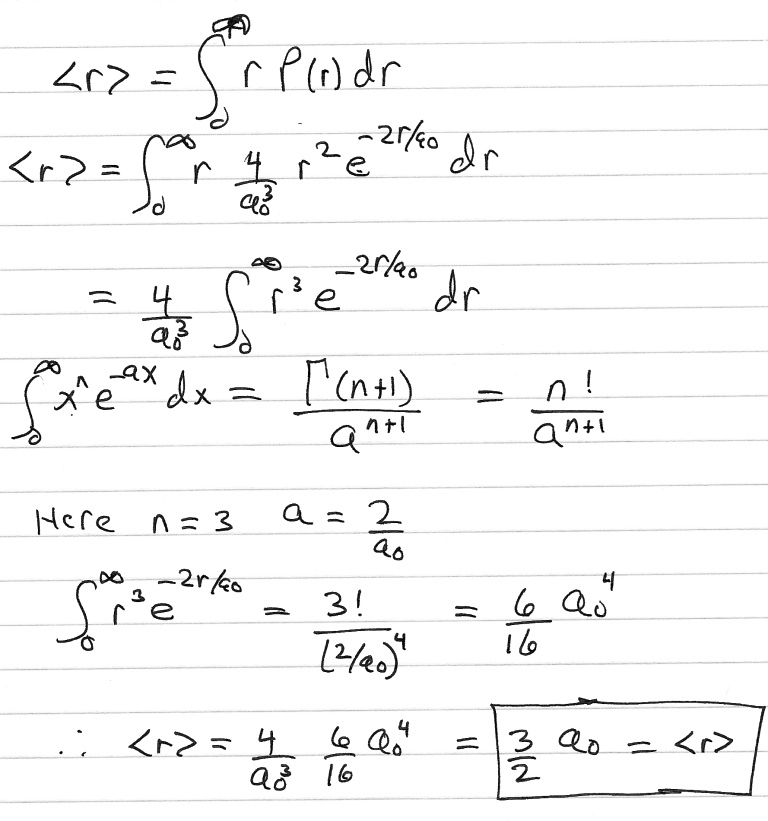 <r> = ∫₀^∞ r P(r) dr
<r> = ∫₀^∞ r 4/a₀³ r² e^(-2r/a₀) dr
= 4/a₀³ ∫₀^∞ r³ e^(-2r/a₀) dr
∫₀^∞ xⁿ e^(-ax) dx = Γ(n+1)/a^(n+1) = n!/a^(n+1)
Here n = 3 a = 2/a₀
∫₀^∞ r³ e^(-2r/a₀) = 3!/(2/a₀)⁴ = 6/16 a₀⁴
∴ <r> = 4/a₀³ 6/16 a₀⁴ = 3/2 a₀ = <r>